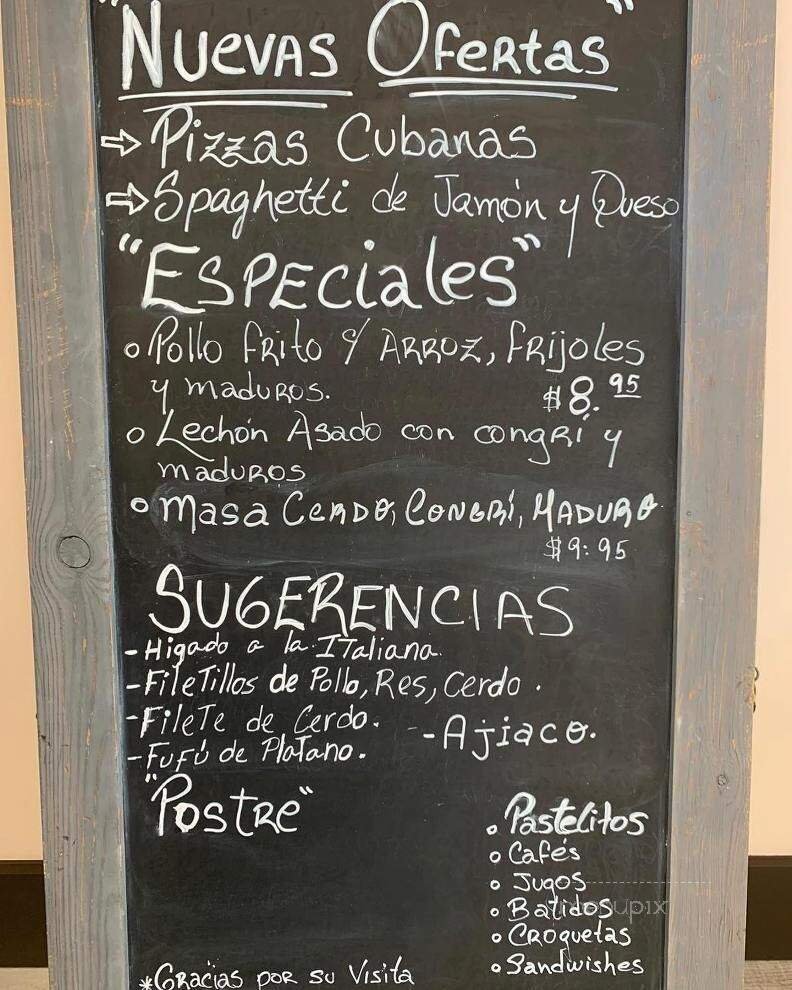 "Nuevas Ofertas"
⇨ Pizzas Cubanas
⇨ Spaghetti de Jamón y Queso
"Especiales"
o Pollo frito c/ Arroz, frijoles
y maduros. $8.95
o Lechón Asado con congrí y
maduros
o Masa Cerdo, Congrí, Maduro
$9:95
SUGERENCIAS
- Higado a la ITaliana.
- FileTillos de Pollo, Res, Cerdo.
- FileTe de Cerdo. - Ajiaco.
- Fufú de PlaTano.
"Postre"
o Pastelitos
o Cafés
o Jugos
o Batidos
o Croquetas
o Sandwishes
*Gracias por su Visita
menupix